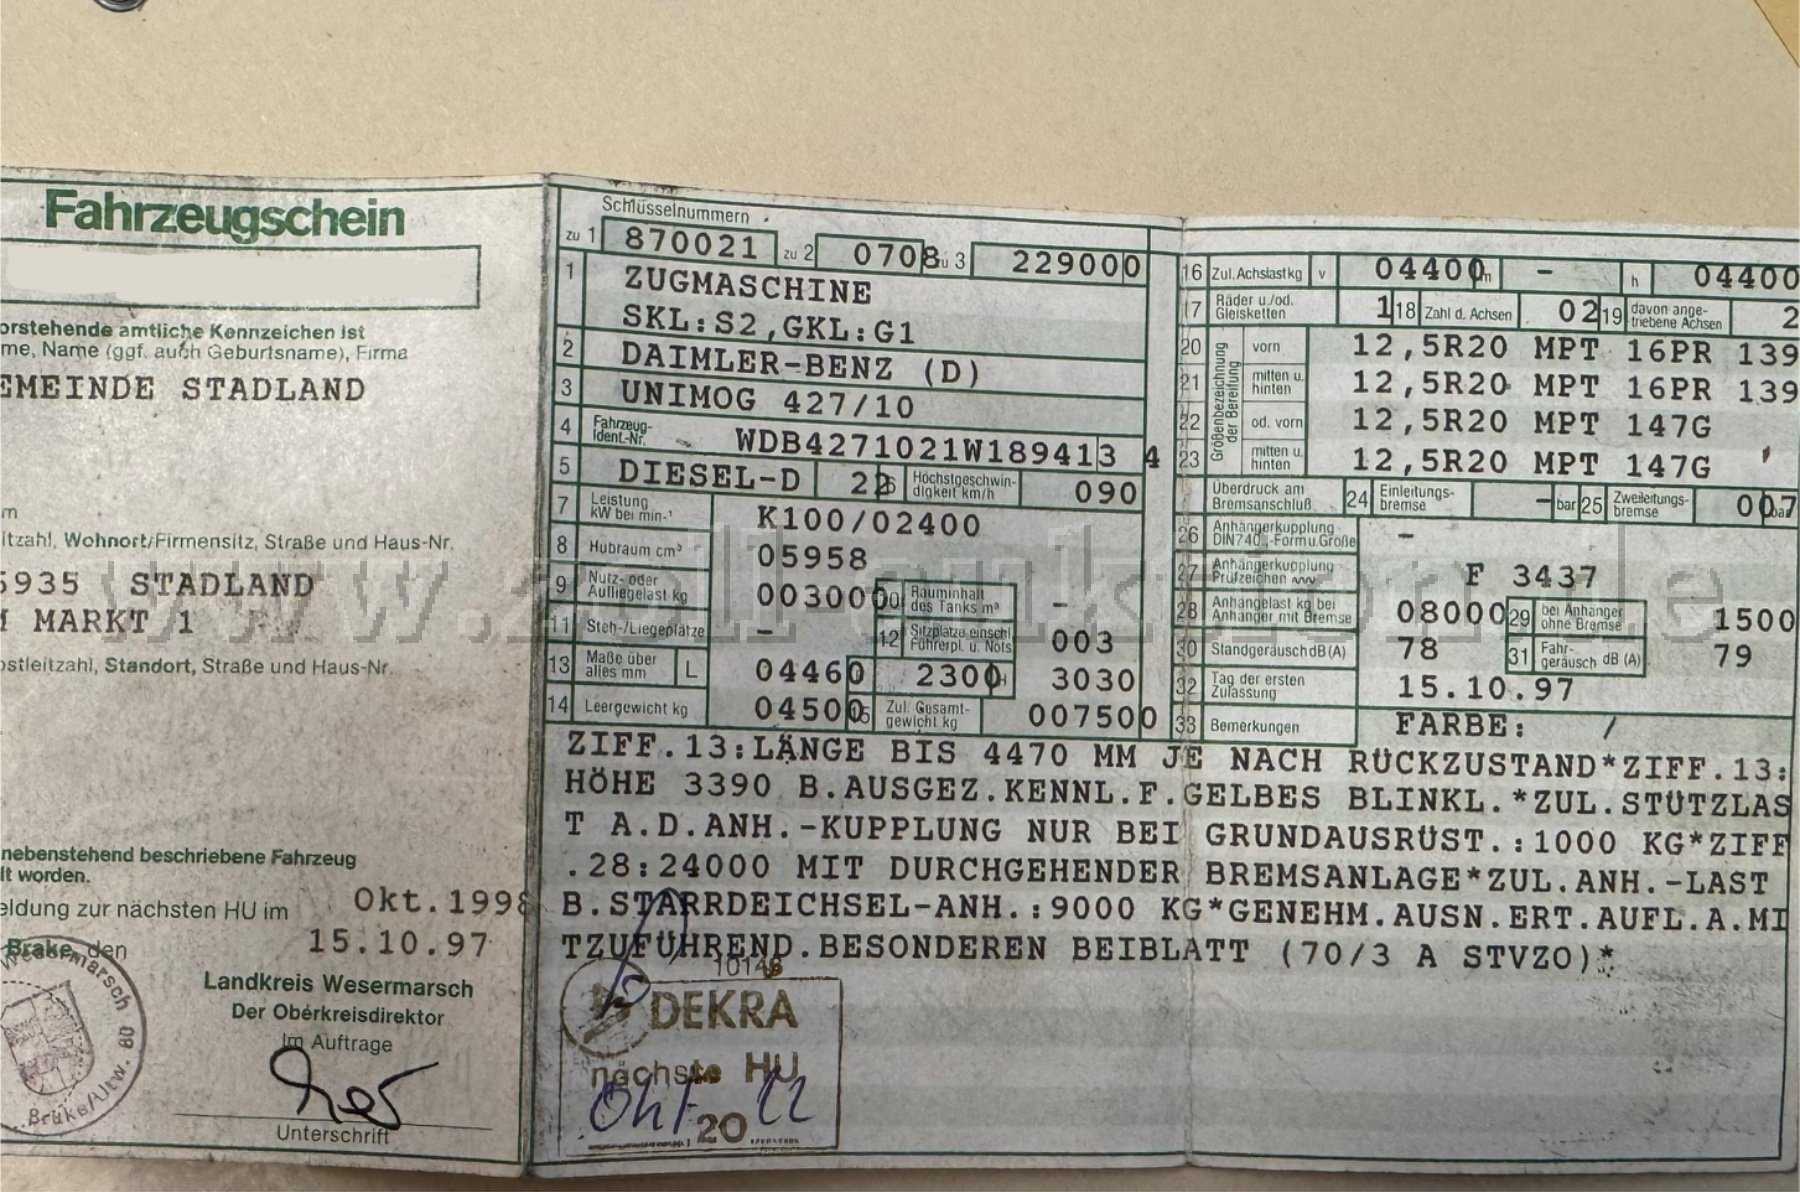 Fahrzeugschein
orstehende amtliche Kennzeichen ist
me, Name (ggf. auch Geburtsname), Firma
EMEINDE STADLAND
m
itzahl, Wohnort/Firmensitz, Straße und Haus-Nr.
5935 STADLAND
M MARKT 1
ostleitzahl, Standort, Straße und Haus-Nr.
nebenstehend beschriebene Fahrzeug
lt worden.
eldung zur nächsten HU im Okt.1998
Brake, den 15.10.97
Landkreis Wesermarsch
Der Oberkreisdirektor
Im Auftrage
Unterschrift
Wesermarsch 80
Brake/Utw.
Schlüsselnummern
zu 1 870021 zu 2 0708 zu 3 229000
1 ZUGMASCHINE
SKL:S2,GKL:G1
2 DAIMLER-BENZ (D)
3 UNIMOG 427/10
4 Fahrzeug-Ident.-Nr. WDB4271021W189413 4
5 DIESEL-D 22 6 Höchstgeschwindigkeit km/h 090
7 Leistung kW bei min-¹ K100/02400
8 Hubraum cm³ 05958
9 Nutz- oder Aufliegelast kg 003000 10 Rauminhalt des Tanks m³ -
11 Steh-/Liegeplätze - 12 Sitzplätze einschl. Führerpl. u. Nots 003
13 Maße über alles mm L 04460 2300 H 3030
14 Leergewicht kg 04500 15 Zul. Gesamtgewicht kg 007500
16 Zul. Achslast kg v 04400 m - h 04400
17 Räder u./od. Gleisketten 1 18 Zahl d. Achsen 02 19 davon angetriebene Achsen 2
Größenbezeichnung der Bereifung
20 vorn 12,5R20 MPT 16PR 139
21 mitten u. hinten 12,5R20 MPT 16PR 139
22 od. vorn 12,5R20 MPT 147G
23 mitten u. hinten 12,5R20 MPT 147G
Überdruck am Bremsanschluß 24 Einleitungsbremse - bar 25 Zweileitungsbremse 007 bar
26 Anhängerkupplung DIN 740.. -Form u. Größe -
27 Anhängerkupplung Prüfzeichen F 3437
28 Anhängelast kg bei Anhänger mit Bremse 08000 29 bei Anhänger ohne Bremse 1500
30 Standgeräusch dB (A) 78 31 Fahrgeräusch dB (A) 79
32 Tag der ersten Zulassung 15.10.97
33 Bemerkungen FARBE: /
ZIFF.13:LÄNGE BIS 4470 MM JE NACH RÜCKZUSTAND*ZIFF.13:
HÖHE 3390 B.AUSGEZ.KENNL.F.GELBES BLINKL.*ZUL.STÜTZLAS
T A.D.ANH.-KUPPLUNG NUR BEI GRUNDAUSRÜST.:1000 KG*ZIFF
.28:24000 MIT DURCHGEHENDER BREMSANLAGE*ZUL.ANH.-LAST
B.STARRDEICHSEL-ANH.:9000 KG*GENEHM.AUSN.ERT.AUFL.A.MI
TZUFÜHREND.BESONDEREN BEIBLATT (70/3 A STVZO)*
10148
DEKRA
nächste HU
Okt 2022
www.zoll-auktion.de